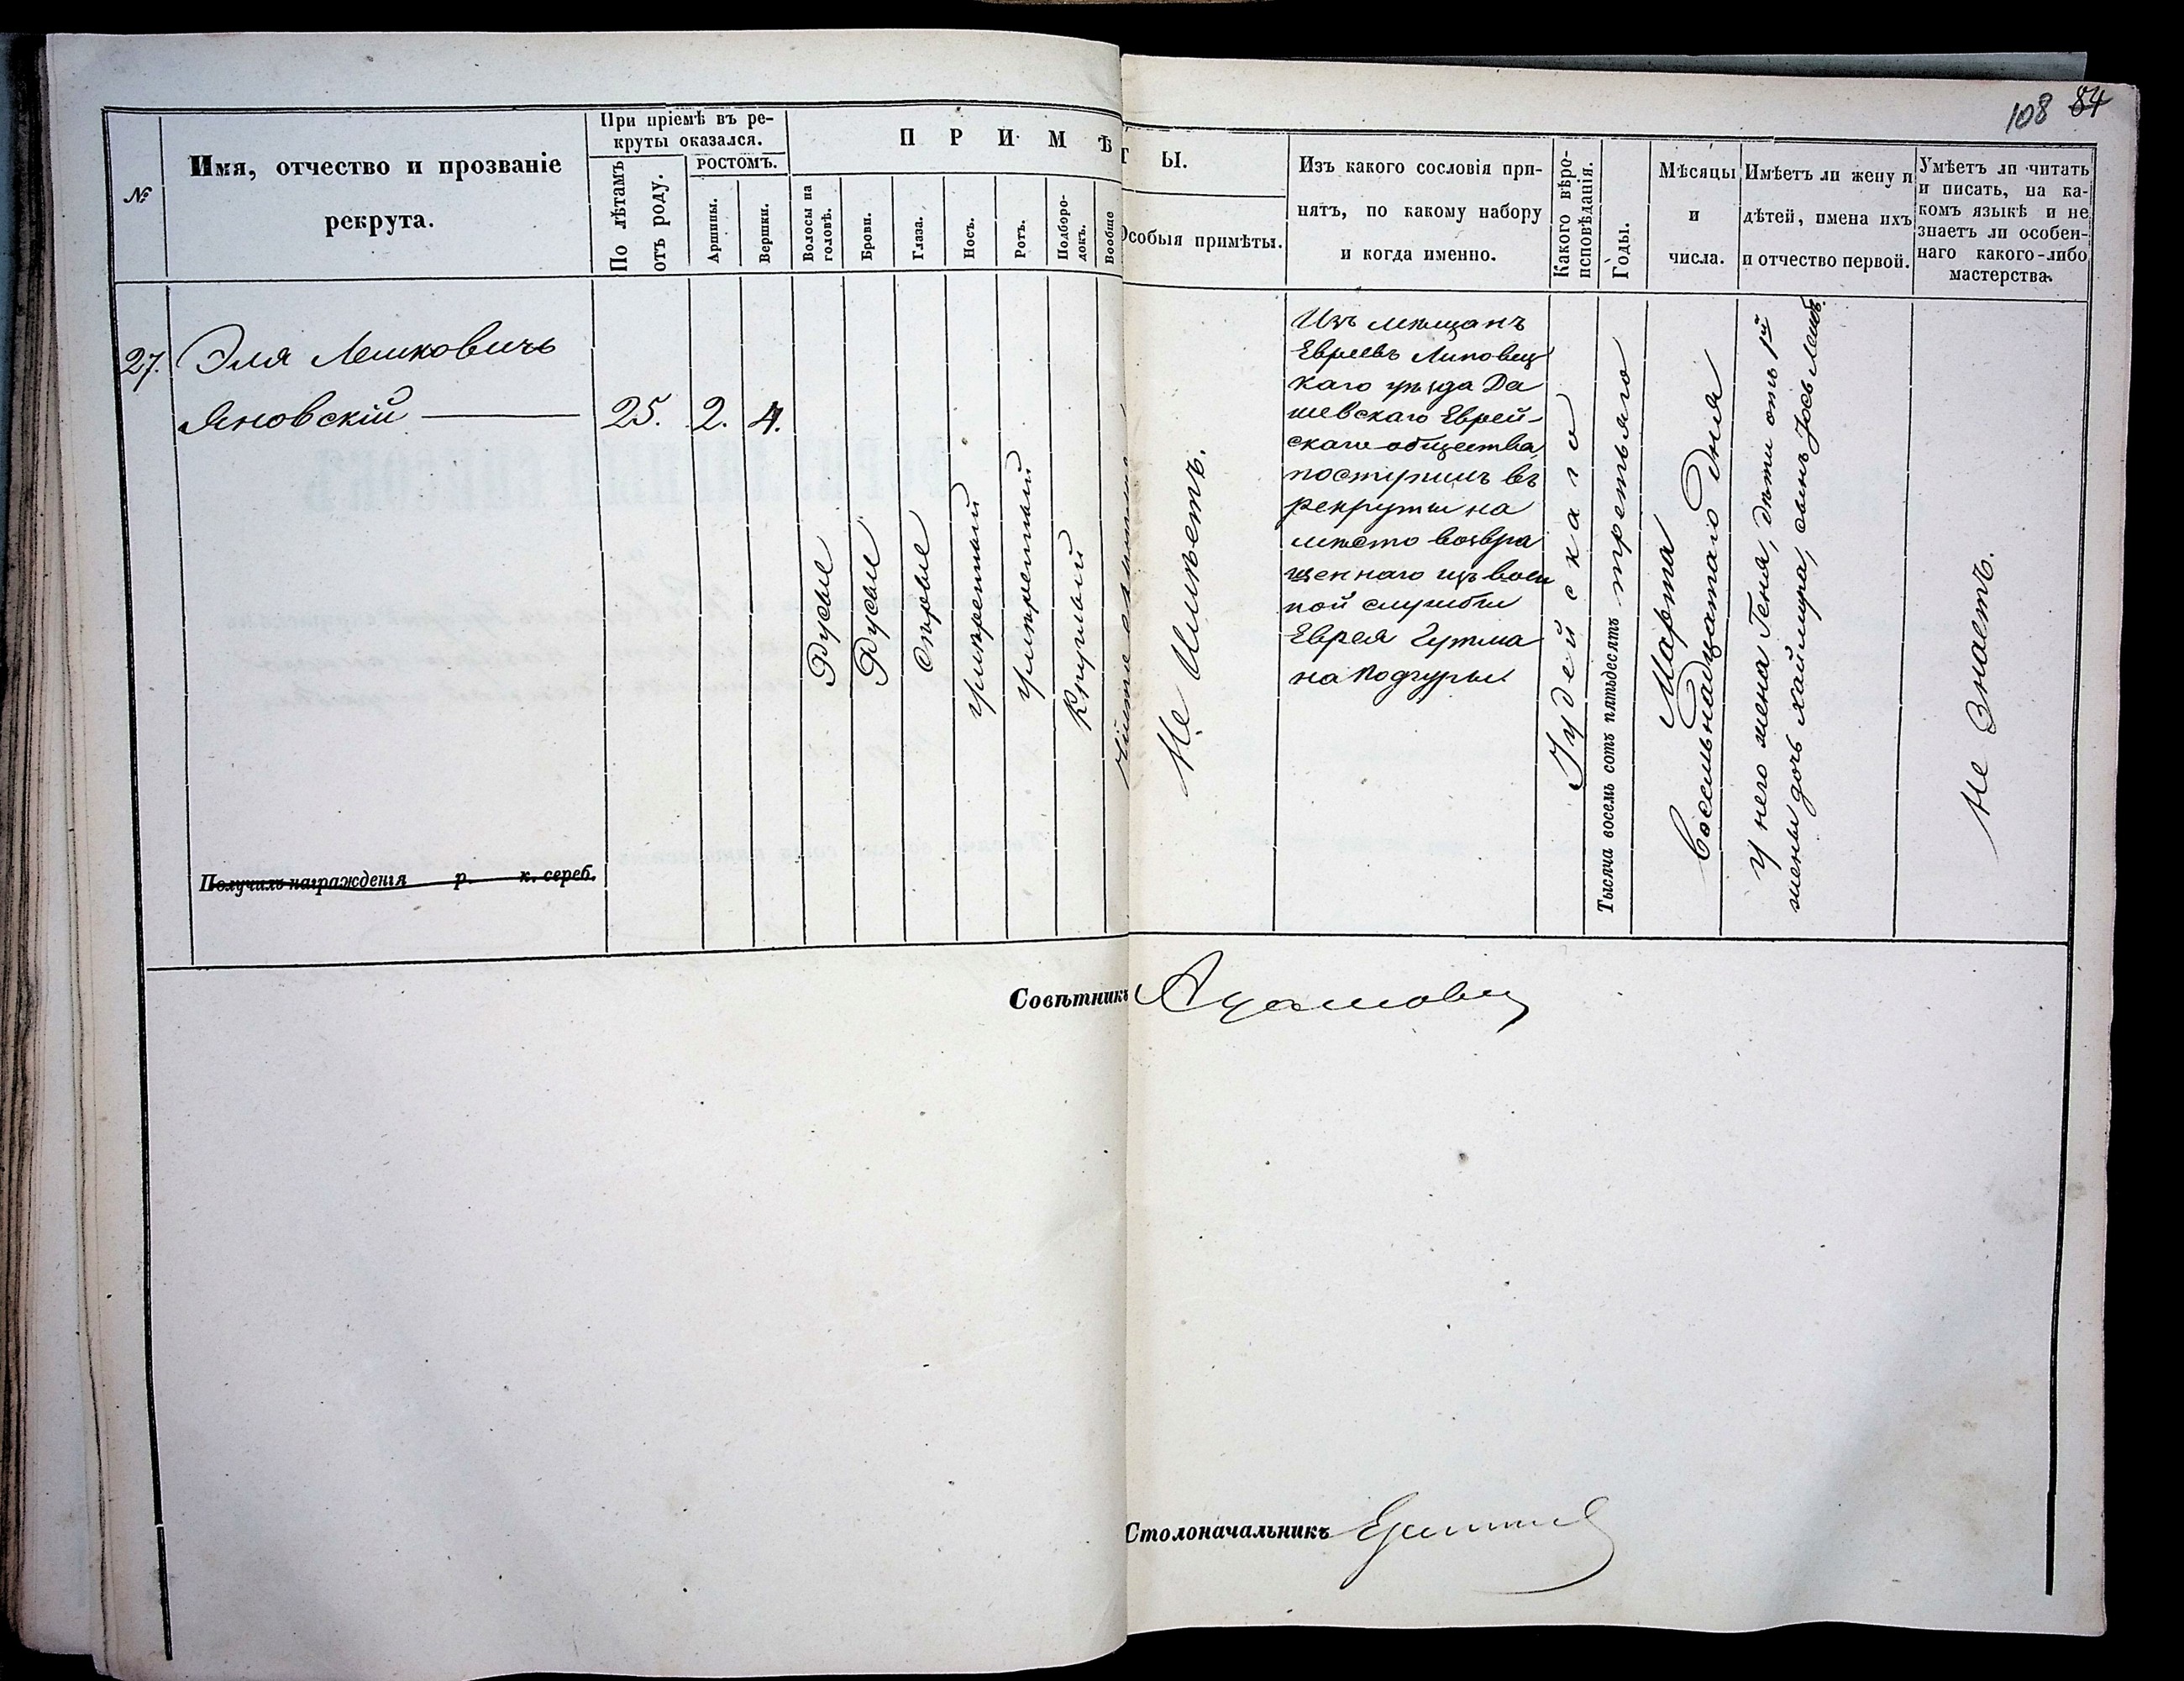 108 84
№
Имя, отчество и прозваніе
рекрута.
При пріемѣ въ ре-
круты оказался.
По лѣтамъ
отъ роду.
РОСТОМЪ.
Аршины.
Вершки.
ПРИМѢ
ТЫ.
Волосы на
головѣ.
Брови.
Глаза.
Носъ.
Ротъ.
Подборо-
докъ.
Вообще
Особыя примѣты.
Изъ какого сословія при-
нятъ, по какому набору
и когда именно.
Какого вѣро-
исповѣданія.
Годы.
Мѣсяцы
и
числа.
Имѣетъ ли жену и
дѣтей, имена ихъ
и отчество первой.
Умѣетъ ли читать
и писать, на ка-
комъ языкѣ и не
знаетъ ли особен-
наго какого-либо
мастерства.
27.
Эля Лейковичъ
Яновскій
25.
2.
4.
Русые
Русые
Сѣрые
умѣренный
умѣренный
Круглый
Не Имѣетъ.
Изъ мѣщанъ
Евреевъ Липовец
каго уѣзда Да
шевскаго Еврей-
скаго общества,
поступилъ въ
рекруты на
мѣсто возвра
щеннаго изъ воен
ной службы
Еврея Гутма
на Подгуры.
Іудейскаго
Тысяча восемь сотъ пятьдесятъ третьяго
Марта
Восемьнадцатаго Дня
У него жена Геня, дѣти отъ 1й
жены дочь Хаймура, сынъ Іось Лейбъ.
Не Знаетъ.
Получилъ награжденія р. к. сереб.
Совѣтникъ
Столоначальникъ